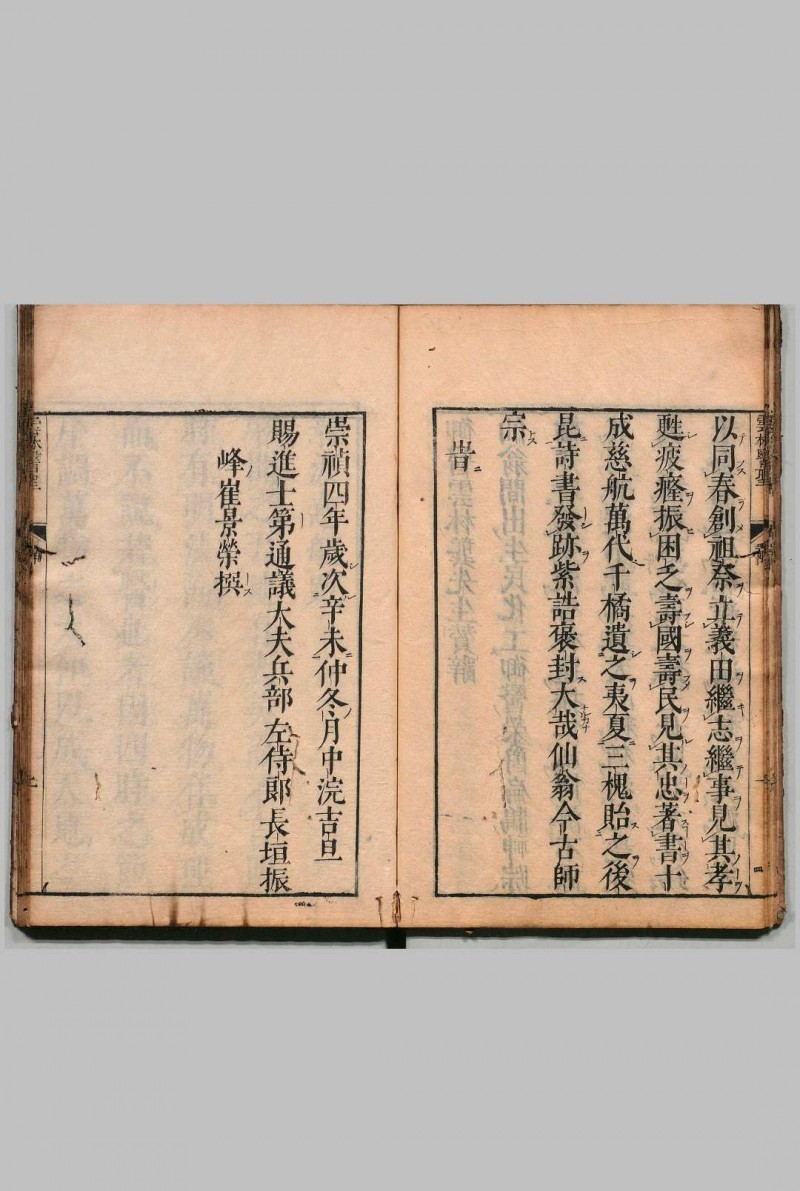 以同春創祖祭立義田繼志繼事見其孝
甦疲癃振困乏壽國壽民見其忠著書十
成慈航萬代千橘遺之夷夏三槐貽之後
昆詩書發跡紫誥褒封大哉仙翁今古師
宗
旹
崇禎四年歲次辛未仲冬月中浣吉旦
賜進士第通議大夫兵部左侍郎長垣振
峰崔景榮撰